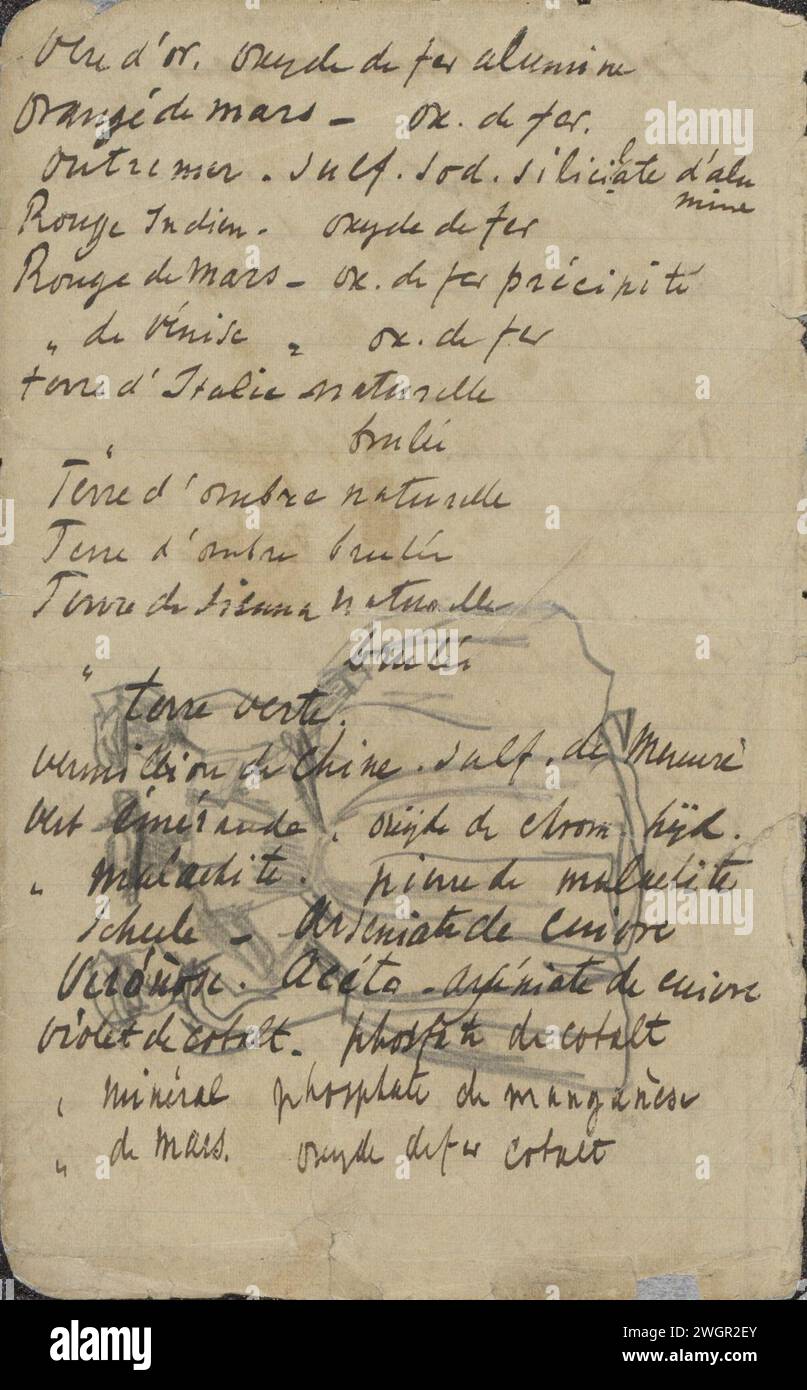 Ocre d'or. oxyde de fer alumine
Orangé de mars - ox. de fer.
Outremer. sulf. sod. siliciate d'alu
mine
Rouge Indien. oxyde de fer
Rouge de Mars - ox. de fer précipité
" de Vénise " ox. de fer
terre d'Italie naturelle
" brulée
Terre d'ombre naturelle
Terre d'ombre brulée
Terre de sienna naturelle
" brulée
terre verte.
vermillion de Chine. sulf. de Mercure
Vert éméraude, oxijde de chrom. hijd.
" malachite. pierre de malachite
Scheele - Arséniate de cuivre
Véronèse. Acéto-arséniate de cuivre
violet de cobalt. phosfate de cobalt
" minéral phosphate de manganèse
" de Mars. oxyde de fer cobalt
alamy
Image ID: 2WGR2EY
www.alamy.com